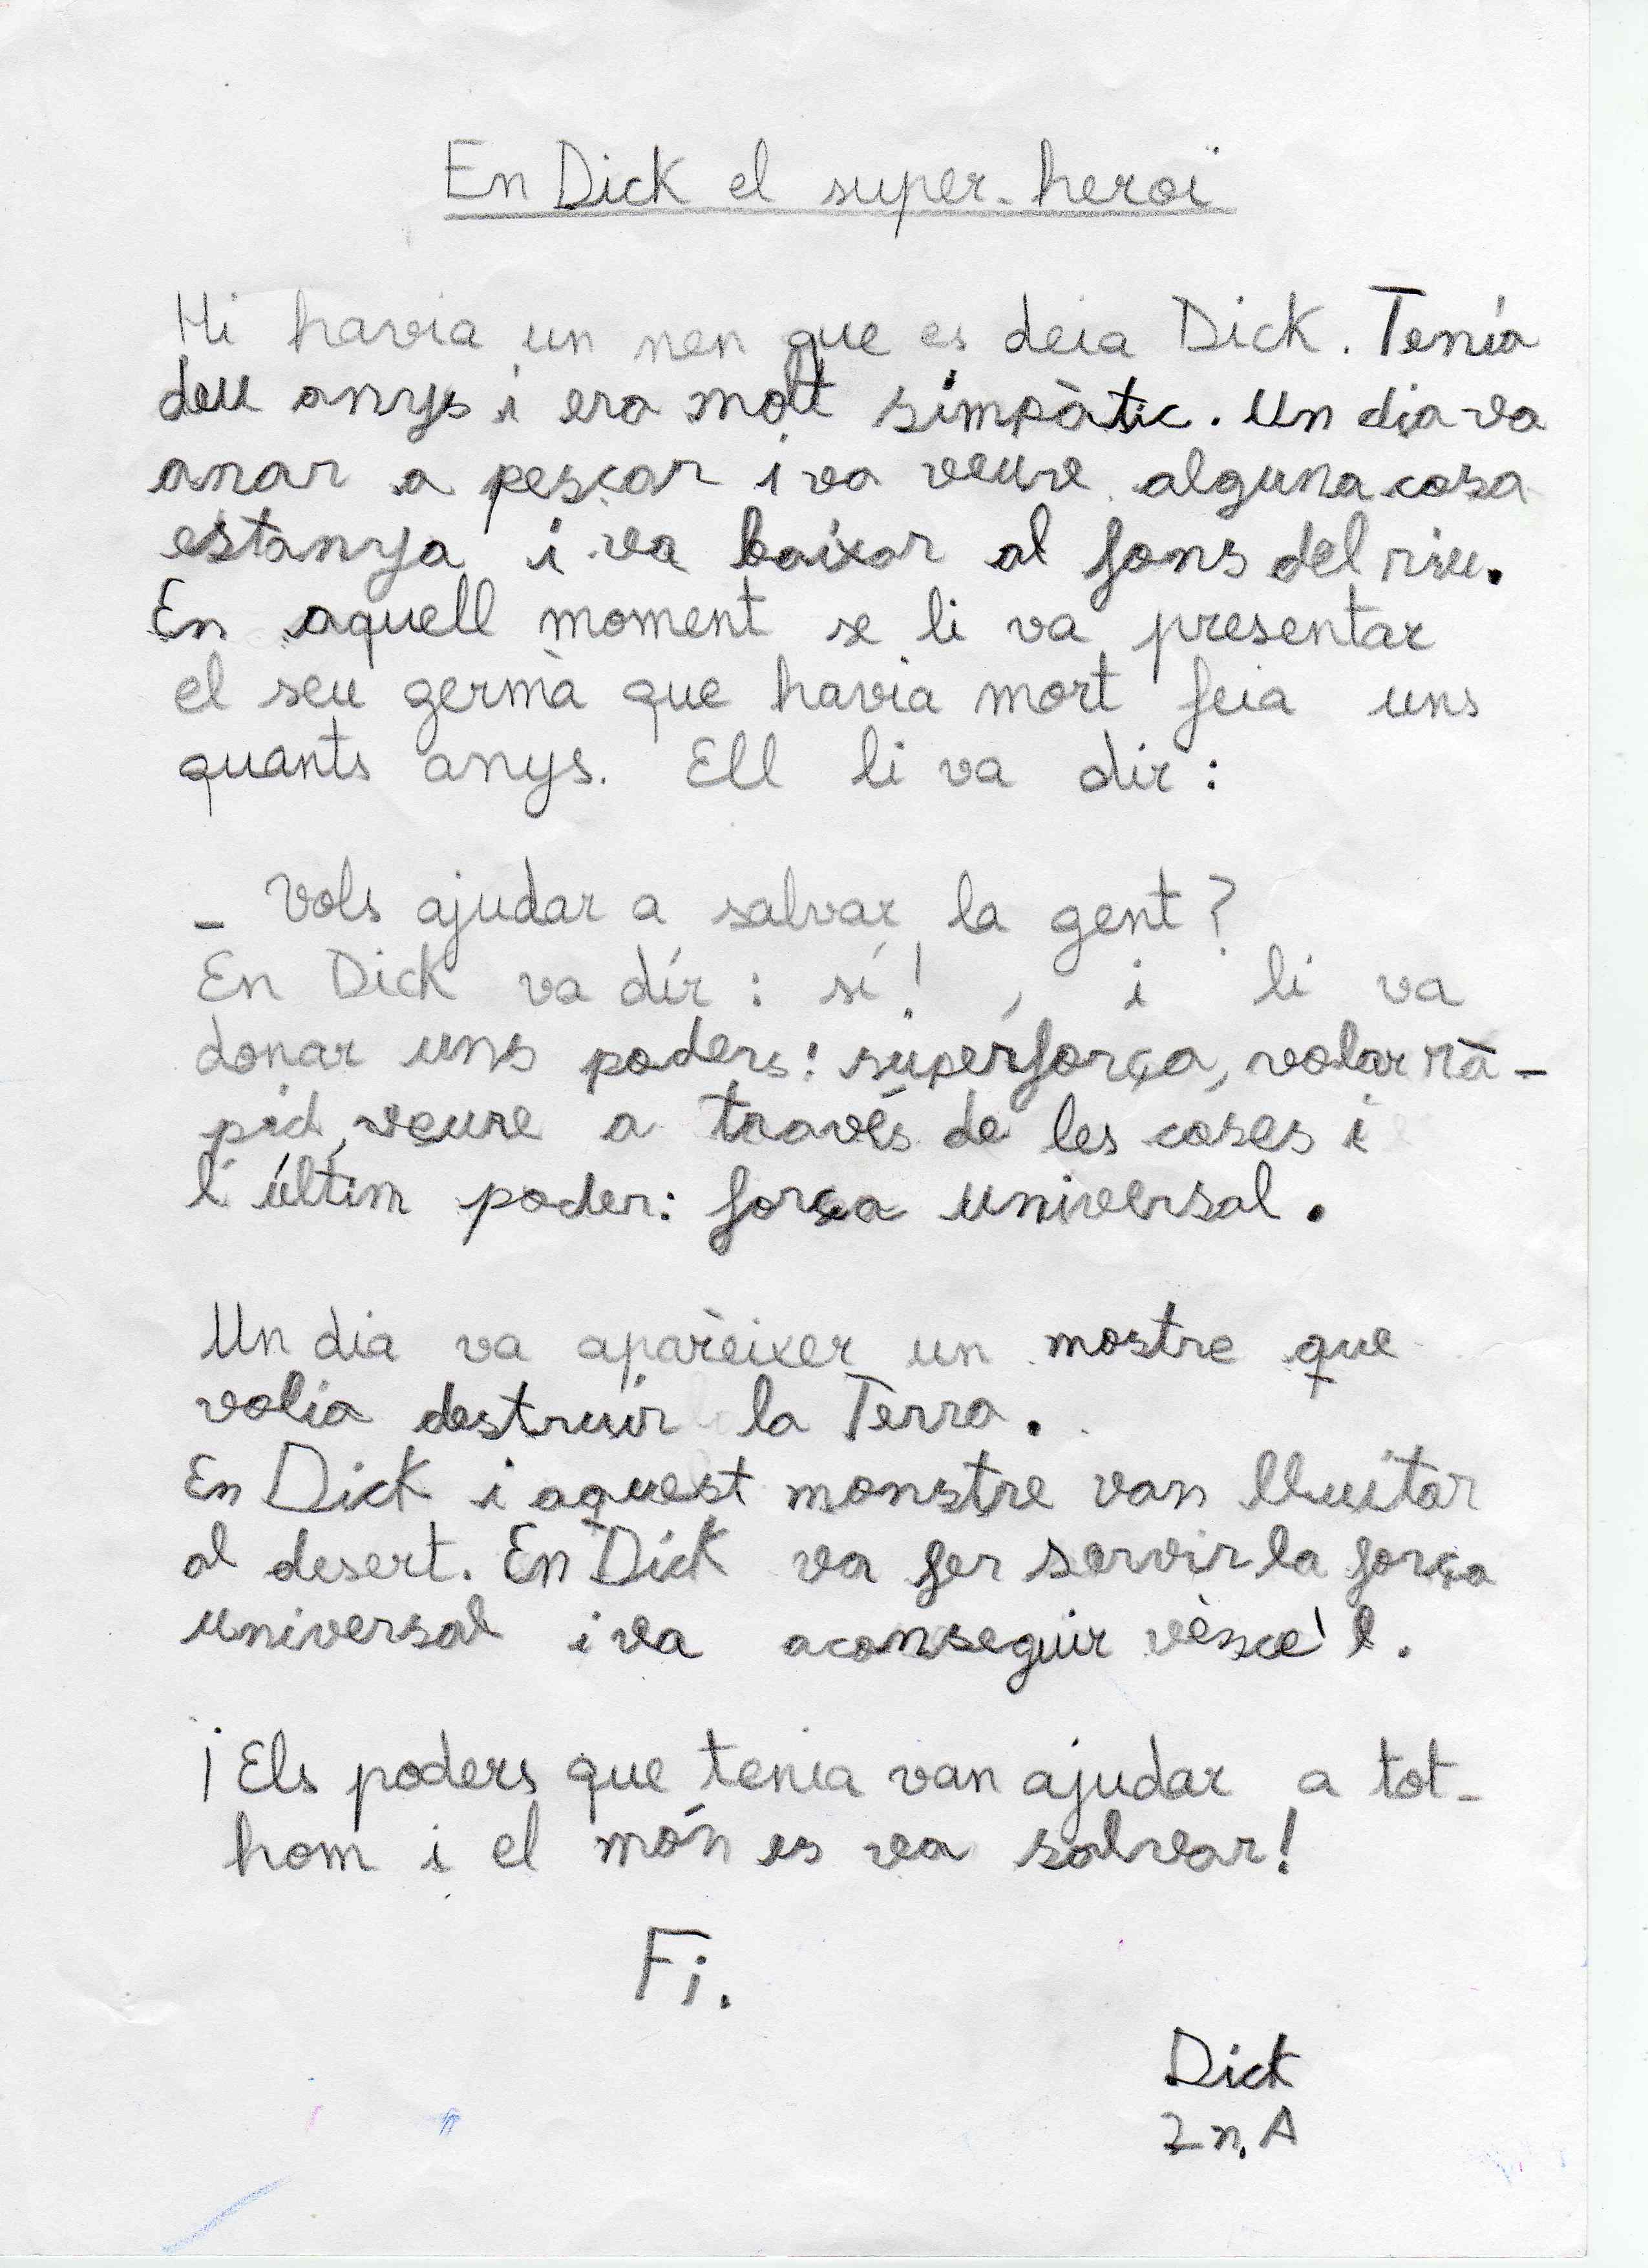 En Dick el super-heroï
Hi havia un nen que es deia Dick. Tenía
deu anys i era molt simpàtic. Un dia va
anar a pescar i va veure alguna cosa
estanya i va baixar al fons del riu.
En aquell moment se li va presentar
el seu germà que havia mort feia uns
quants anys. Ell li va dir:
- Vols ajudar a salvar la gent?
En Dick va dír: sí!, i li va
donar uns poders: superforça, volar rà-
pid, veure a través de les coses i
l'últim poder: força universal.
Un dia va aparèixer un mostre que
volia destruir la Terra.
En Dick i aquest monstre van lluitar
al desert. En Dick va fer servir la força
universal i va aconseguir vènce'l.
¡Els poders que tenia van ajudar a tot-
hom i el món es va salvar!
Fi.
Dick
2n. A